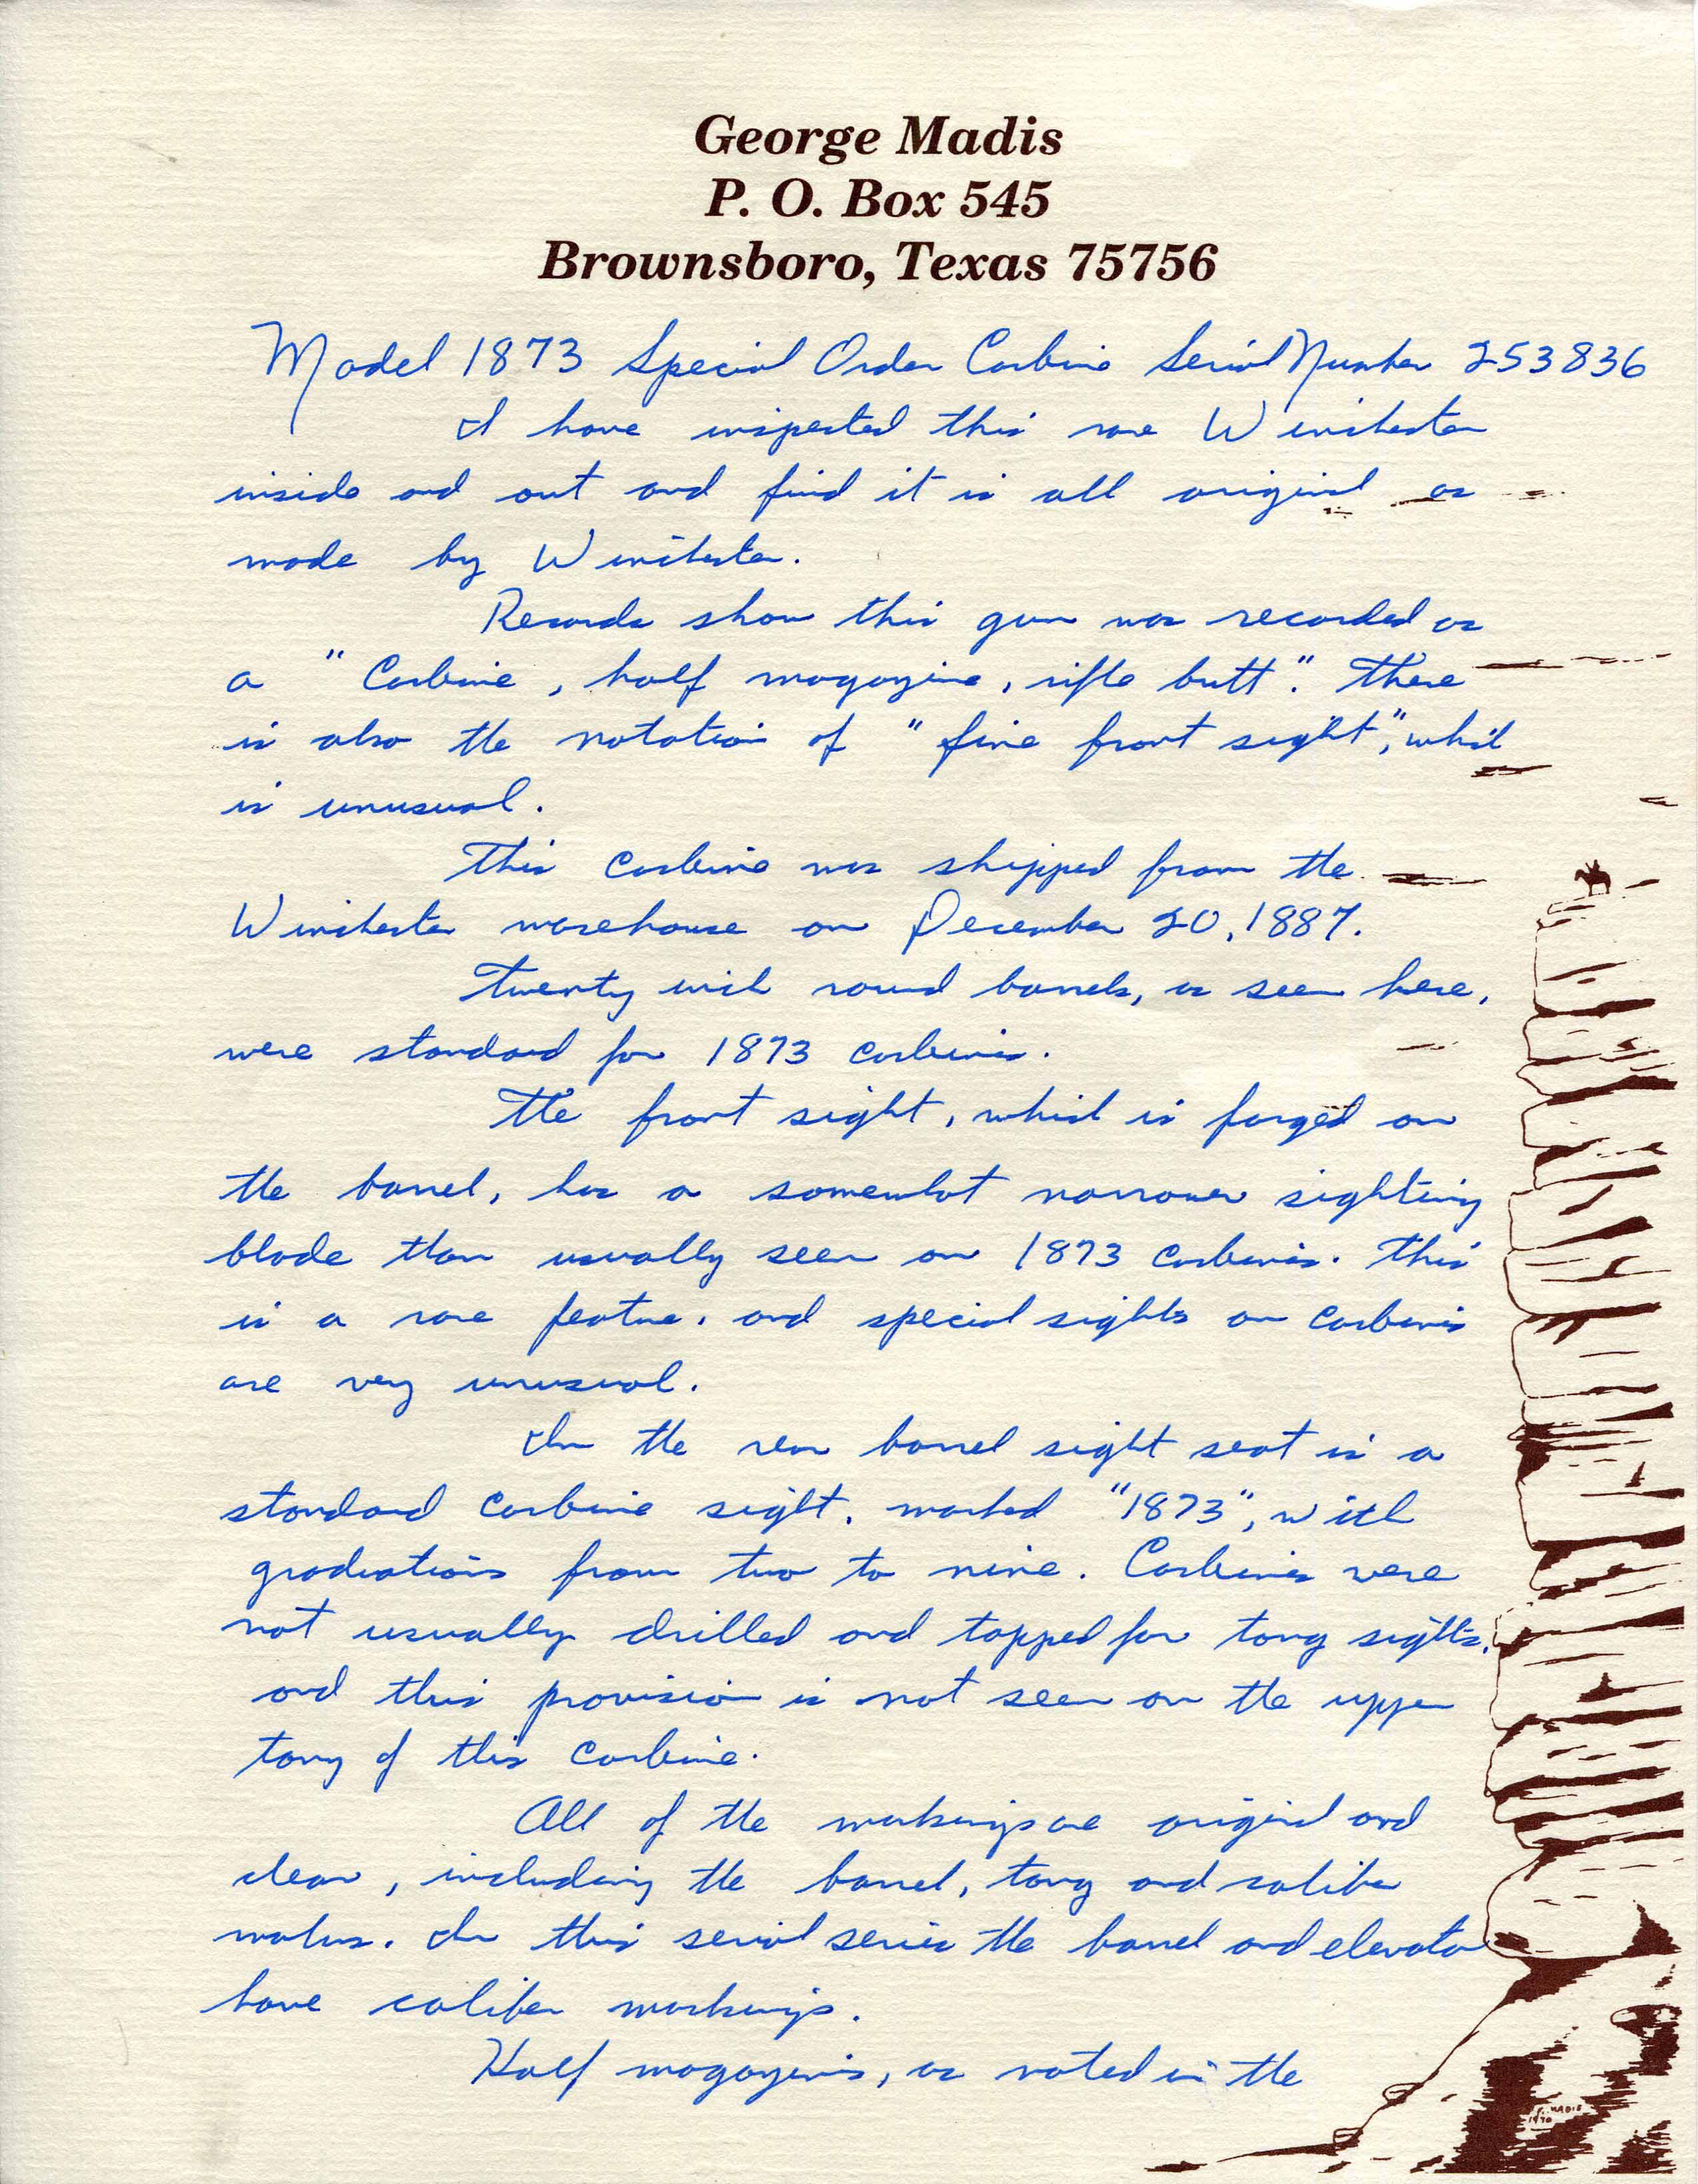 George Madis
P. O. Box 545
Brownsboro, Texas 75756
Model 1873 Special Order Carbine Serial Number 253836
I have inspected this rare Winchester
inside and out and find it is all original as
made by Winchester.
Records show this gun was recorded as
a "Carbine, half magazine, rifle butt". There
is also the notation of "fine front sight", which
is unusual.
This carbine was shipped from the
Winchester warehouse on December 20, 1887.
Twenty inch round barrels, as seen here,
were standard for 1873 carbines.
The front sight, which is forged on
the barrel, has a somewhat narrower sighting
blade than usually seen on 1873 carbines. This
is a rare feature, and special sights on carbines
are very unusual.
In the rear barrel sight seat is a
standard carbine sight, marked "1873", with
graduations from two to nine. Carbines were
not usually drilled and tapped for tang sights,
and this provision is not seen on the upper
tang of this carbine.
All of the markings are original and
clear, including the barrel, tang and caliber
marks. In this serial series the barrel and elevator
have caliber markings.
Half magazines, as noted in the
MADIS
1970